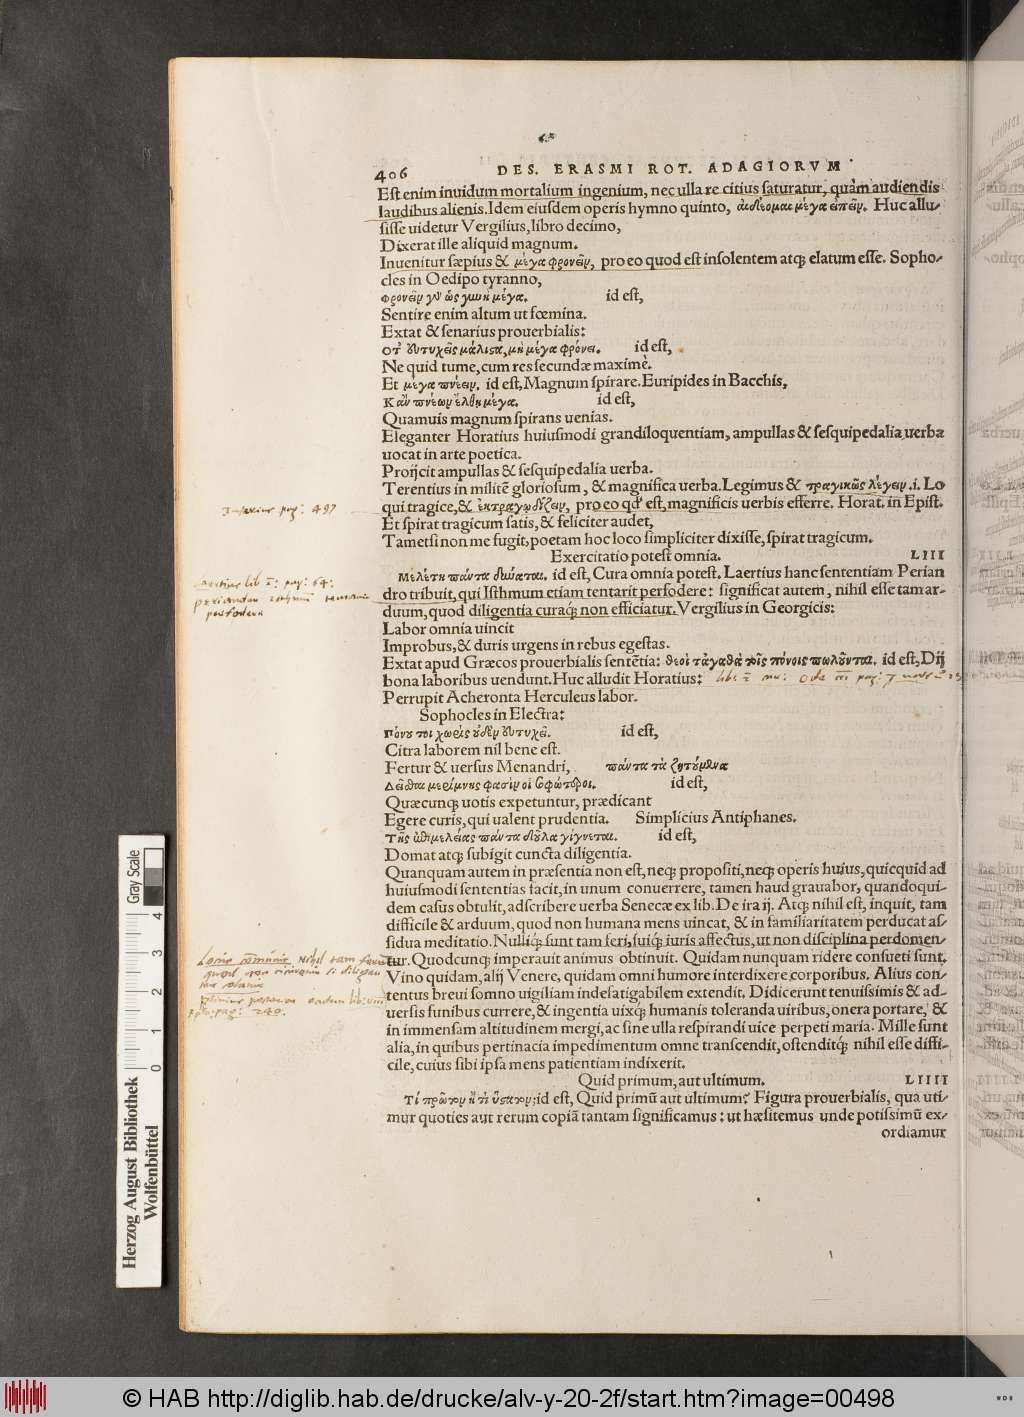 406 DES. ERASMI ROT. ADAGIORVM
Est enim inuidum mortalium ingenium, nec ulla re citius saturatur, quàm audiendis
laudibus alienis. Idem eiusdem operis hymno quinto, αἰδέομαι μέγα εἰπεῖν. Huc allu-
sisse uidetur Vergilius, libro decimo,
Dixerat ille aliquid magnum.
Inuenitur sæpius & μέγα φρονεῖν, pro eo quod est insolentem atq; elatum esse. Sopho-
cles in Oedipo tyranno,
φρονεῖν γὰρ ὡς γυνὴ μέγα. id est,
Sentire enim altum ut fœmina.
Extat & senarius prouerbialis:
Ὅτ' εὐτυχεῖς μάλιστα, μὴ μέγα φρόνει. id est,
Ne quid tume, cum res secundæ maximè.
Et μέγα πνέειν. id est, Magnum spirare. Euripides in Bacchis,
Κἂν πνέων ἔλθῃ μέγα. id est,
Quamuis magnum spirans uenias.
Eleganter Horatius huiusmodi grandiloquentiam, ampullas & sesquipedalia uerba
uocat in arte poetica.
Proijcit ampullas & sesquipedalia uerba.
Terentius in militē gloriosum, & magnifica uerba. Legimus & τραγικῶς λέγειν .i. Lo
qui tragice, & ἐκτραγῳδίζειν, pro eo qd' est, magnificis uerbis efferre. Horat. in Epist.
Et spirat tragicum satis, & feliciter audet,
Tametsi non me fugit, poetam hoc loco simpliciter dixisse, spirat tragicum.
Exercitatio potest omnia. LIII
Μελέτη πάντα δύναται. id est, Cura omnia potest. Laertius hanc sententiam Perian
dro tribuit, qui Isthmum etiam tentarit perfodere: significat autem, nihil esse tam ar-
duum, quod diligentia curaq; non efficiatur. Vergilius in Georgicis:
Labor omnia uincit
Improbus, & duris urgens in rebus egestas.
Extat apud Græcos prouerbialis sentētia: θεοὶ τἀγαθὰ τοῖς πόνοις πωλοῦνται. id est, Dij
bona laboribus uendunt. Huc alludit Horatius:
Perrupit Acheronta Herculeus labor.
Sophocles in Electra:
Πόνου τοι χωρὶς οὐδὲν εὐτυχεῖ. id est,
Citra laborem nil bene est.
Fertur & uersus Menandri, πάντα τὰ ζητούμενα
Δεῖσθαι μερίμνης φασὶν οἱ σοφώτεροι. id est,
Quæcunq; uotis expetuntur, prædicant
Egere curis, qui ualent prudentia. Simplicius Antiphanes.
Τῆς ἐπιμελείας πάντα δοῦλα γίγνεται. id est,
Domat atq; subigit cuncta diligentia.
Quanquam autem in præsentia non est, neq; propositi, neq; operis huius, quicquid ad
huiusmodi sententias facit, in unum conuerrere, tamen haud grauabor, quandoqui-
dem casus obtulit, adscribere uerba Senecæ ex lib. De ira ij. Atq; nihil est, inquit, tam
difficile & arduum, quod non humana mens uincat, & in familiaritatem perducat as-
sidua meditatio. Nulliq; sunt tam feri, suiq; iuris affectus, ut non disciplina perdomen-
tur. Quodcunq; imperauit animus obtinuit. Quidam nunquam ridere consueti sunt,
Vino quidam, alij Venere, quidam omni humore interdixere corporibus. Alius con-
tentus breui somno uigiliam indefatigabilem extendit. Didicerunt tenuissimis & ad-
uersis funibus currere, & ingentia uixq; humanis toleranda uiribus, onera portare, &
in immensam altitudinem mergi, ac sine ulla respirandi uice perpeti maria. Mille sunt
alia, in quibus pertinacia impedimentum omne transcendit, ostenditq; nihil esse diffi-
cile, cuius sibi ipsa mens patientiam indixerit.
Quid primum, aut ultimum. LIIII
Τί πρῶτον ἢ τί ὕστατον; id est, Quid primū aut ultimum? Figura prouerbialis, qua uti-
mur quoties aut rerum copiā tantam significamus: ut hæsitemus unde potissimū ex-
ordiamur
pag: 497
lib pag: 64:
pag: 240.
Herzog August Bibliothek
Wolfenbüttel
0 1 2 3 4 Gray Scale
© HAB http://diglib.hab.de/drucke/alv-y-20-2f/start.htm?image=00498